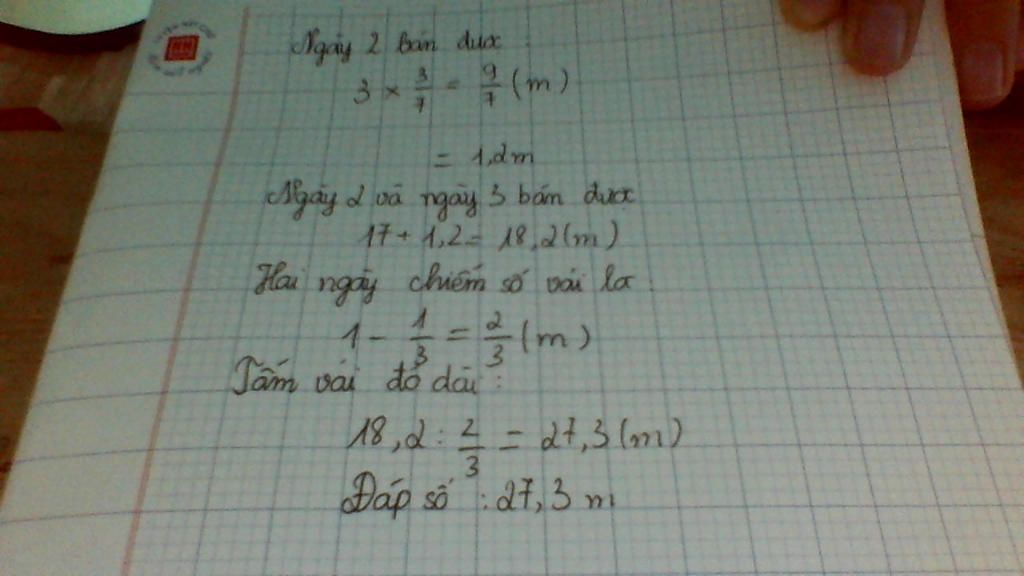 Ngày 2 bán được :
3 × 3/7 = 9/7 (m)
= 1,2m
Ngày 2 và ngày 3 bán được
17 + 1,2 = 18,2 (m)
Hai ngày chiếm số vải là :
1 - 1/3 = 2/3 (m)
Tấm vải đó dài :
18,2 : 2/3 = 27,3 (m)
Đáp số : 27,3 m